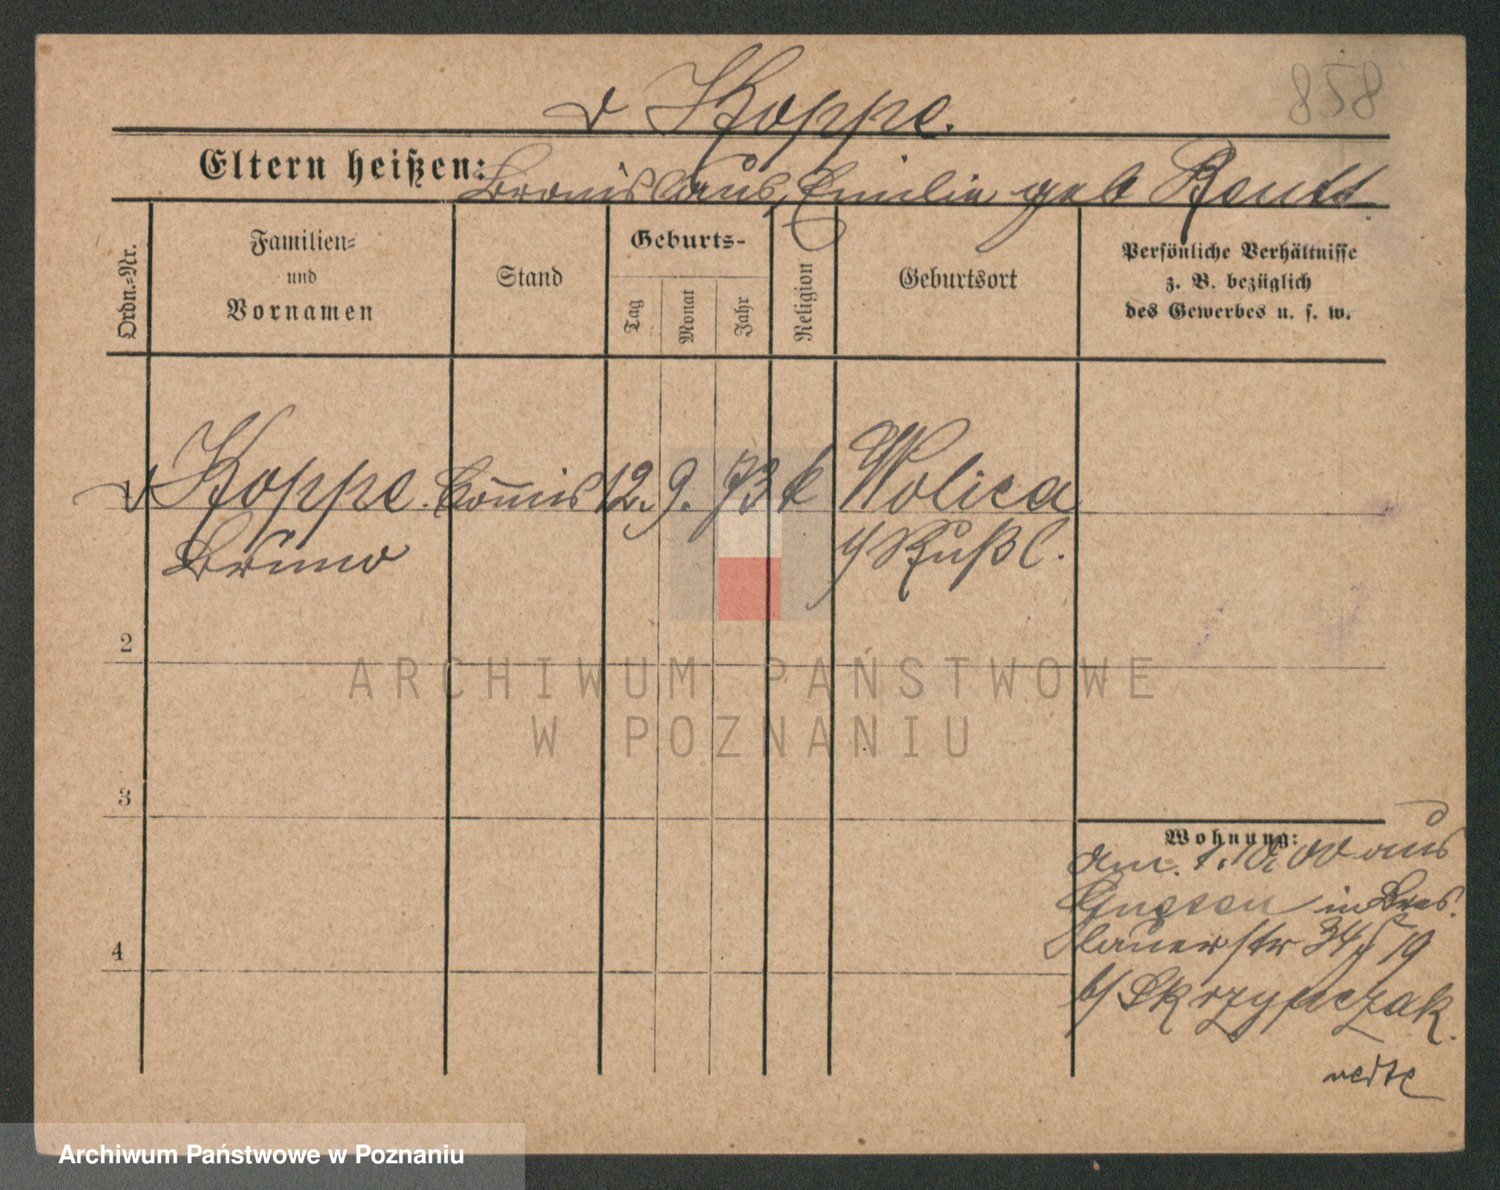 858
v Koppe.
Eltern heißen: Bronislaus, Emilie geb
Ordn.-Nr.
Familien-
und
Vornamen
Stand
Geburts-
Tag
Monat
Jahr
Religion
Geburtsort
Persönliche Verhältnisse
z. B. bezüglich
des Gewerbes u. s. w.
1 v Koppe. Commis 12. 9. 73 k Wolica
Bruno
i/ Rußl.
2
3
4
Wohnung:
am 1. 10. 00 aus
Gnesen in Bres-
lauerstr 34/19
b/ Skrzypczak.
ARCHIWUM PAŃSTWOWE
W POZNANIU
Archiwum Państwowe w Poznaniu